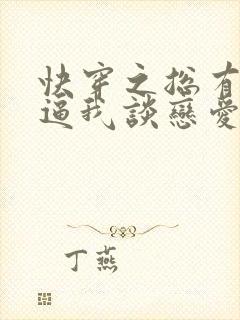 快穿之總有
逼我談戀愛
丁燕